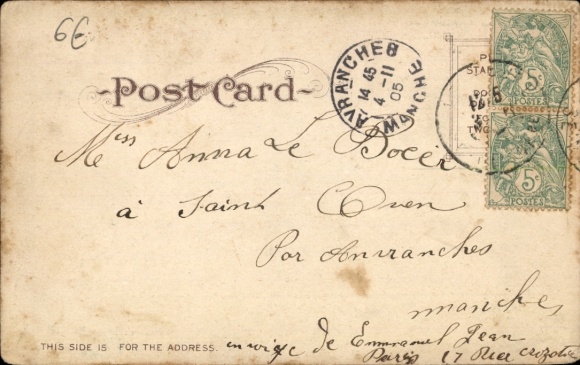 6€
Post Card
AVRANCHES
14 45
4 -11
05
MANCHE
5c
POSTES
5c
POSTES
Miss Anna Le Bocér
à Saint Ouen
Par Avranches
manche
THIS SIDE IS FOR THE ADDRESS.
de Emmanuel Jean
Paris 17 Rue